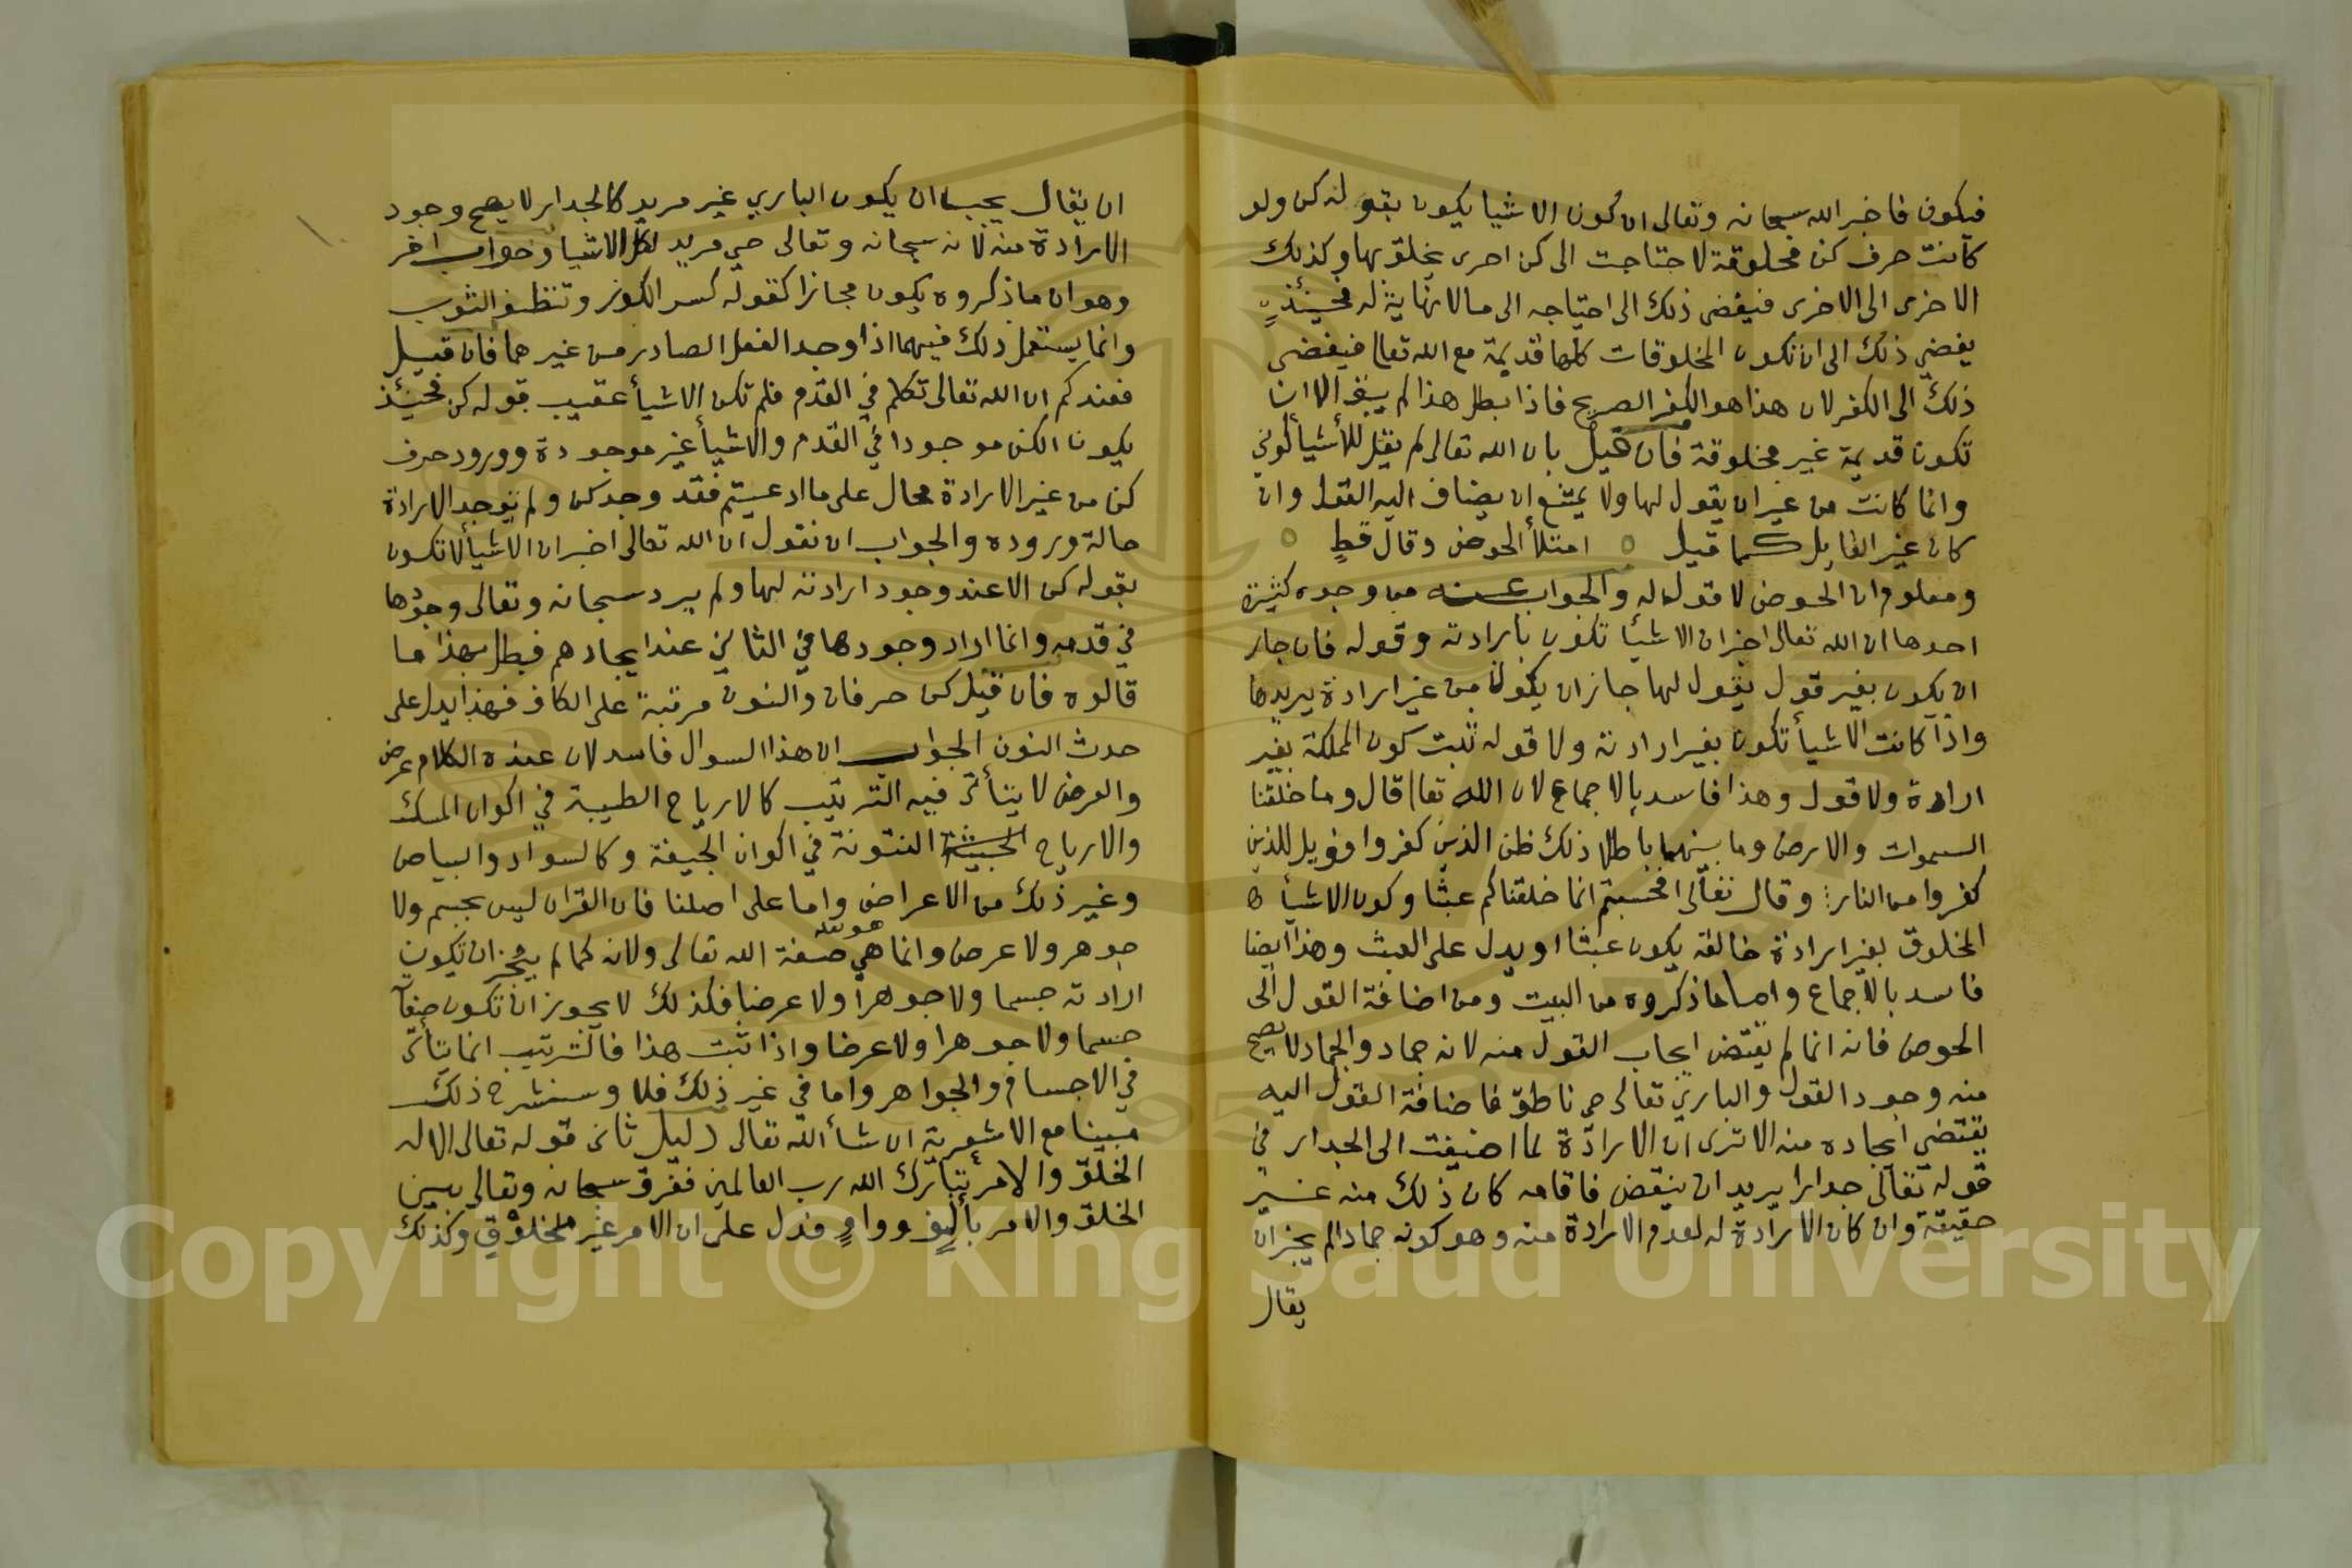 فيكون فاخبر الله سبحانه وتعالى ان كون الاشيا يكون بقوله كن ولو
كانت حرف كن مخلوقة لاحتاجت الى كن اخرى يخلق بها وكذلك
الاخرى الى الاخرى فيفضى ذلك الى احتياجه الى مالانهاية له فحينئذٍ
يفضي ذلك الى ان تكون المخلوقات كلها قديمة مع الله تعالى فيفضى
ذلك الى الكفر لان هذا هو الكفر الصريح فاذا بطل هذا لم يبق الا ان
تكون قديمة غير مخلوقة فان قيل بان الله تعالى لم يقل للأشيأ كوني
وانما كانت من غير ان يقول لها ولا يمتنع ان يضاف اليه القول وان
كان غير القايل كما قيل ٥ امتلأ الحوض وقال قطٍ ٥
ومعلوم ان الحوض لا قول له والجواب عنه من وجوه كثيرة
احدها ان الله تعالى اخبر ان الاشيأ تكون بارادته وقوله فان جاز
ان يكون بغير قول يقول لها جاز ان يكون من غير ارادة يريدها
واذا كانت الاشيأ تكون بغير ارادته ولا قوله ثبت كون المملكة بغير
ارادة ولا قول وهذا فاسد بالاجماع لان الله تعالى قال وما خلقنا
السموات والارض وما بينهما باطلا ذلك ظن الذين كفروا فويل للذين
كفروا من النار وقال تعالى افحسبتم انما خلقناكم عبثا وكون الاشيأ
المخلوق بغير ارادة خالقه يكون عبثا او يدل على العبث وهذا ايضا
فاسد بالاجماع واما ما ذكروه من البيت ومن اضافة القول الى
الحوض فانه انما لم يقتض ايجاب القول منه لانه جماد والجماد لا يصح
منه وجود القول والباري تعالى حي ناطق فاضافة القول اليه
يقتضي ايجاده منه الا ترى ان الارادة لما اضيفت الى الجدار في
قوله تعالى جدارا يريد ان ينقض فاقامه كان ذلك منه غير
حقيقة وان كان الارادة له لعدم الارادة منه وهو كونه جمادا لم يجز ان
يقال
ان يقال يجب ان يكون الباري غير مريد كالجدار لا يصح وجود
الارادة منه لانه سبحانه وتعالى حي مريد لكل الاشيا وجواب اخر
وهو ان ماذكروه يكون مجازا كقوله كسر الكوز وتنظف الثوب
وانما يستعمل ذلك فيهما اذا وجد الفعل الصادر من غيرهما فان قيل
فعندكم ان الله تعالى تكلم في القدم فلم تكن الاشيأ عقيب قوله كن فحينئذ
يكون الكن موجودا في القدم والاشيأ غير موجودة وورود حرف
كن من غير الارادة محال على ما ادعيتم فقد وجد كن ولم توجد الارادة
حالة وروده والجواب ان نقول ان الله تعالى اخبر ان الاشيأ لا تكون
بقوله كن الا عند وجود ارادته لها ولم يرد سبحانه وتعالى وجودها
في قدمه وانما اراد وجودها في الثاني عند ايجادهم فبطل بهذا ما
قالوه فان قيل كن حرفان والنون مرتبة على الكاف فهذا يدل على
حدث النون الجواب ان هذا السوال فاسد لان عنده الكلام عرض
والعرض لا يتأتى فيه الترتيب كالارياح الطيبة في اكوان المسك
والارياح الخبيثة النتونة في اكوان الجيفة وكالسواد والبياض
وغير ذلك من الاعراض واما على اصلنا فان القران ليس بجسم ولا
جوهر ولا عرض وانما هي صفة الله تعالى ولانه كما لم يجز ان تكون
ارادته جسما ولا جوهرا ولا عرضا فكذلك لا يجوز ان تكون صفاته
جسما ولا جوهرا ولا عرضا واذا ثبت هذا فالترتيب انما يتأتى
في الاجسام والجواهر واما في غير ذلك فلا وسنشرح ذلك
مبينا مع الاشعرية ان شأ الله تعالى دليل ثان قوله تعالى الا له
الخلق والامر تبارك الله رب العالمين ففرق سبحانه وتعالى بين
الخلق والامر بألفٍ وواوٍ فدل على ان الامر غير مخلوقٍ وكذلك
Copyright © King Saud University